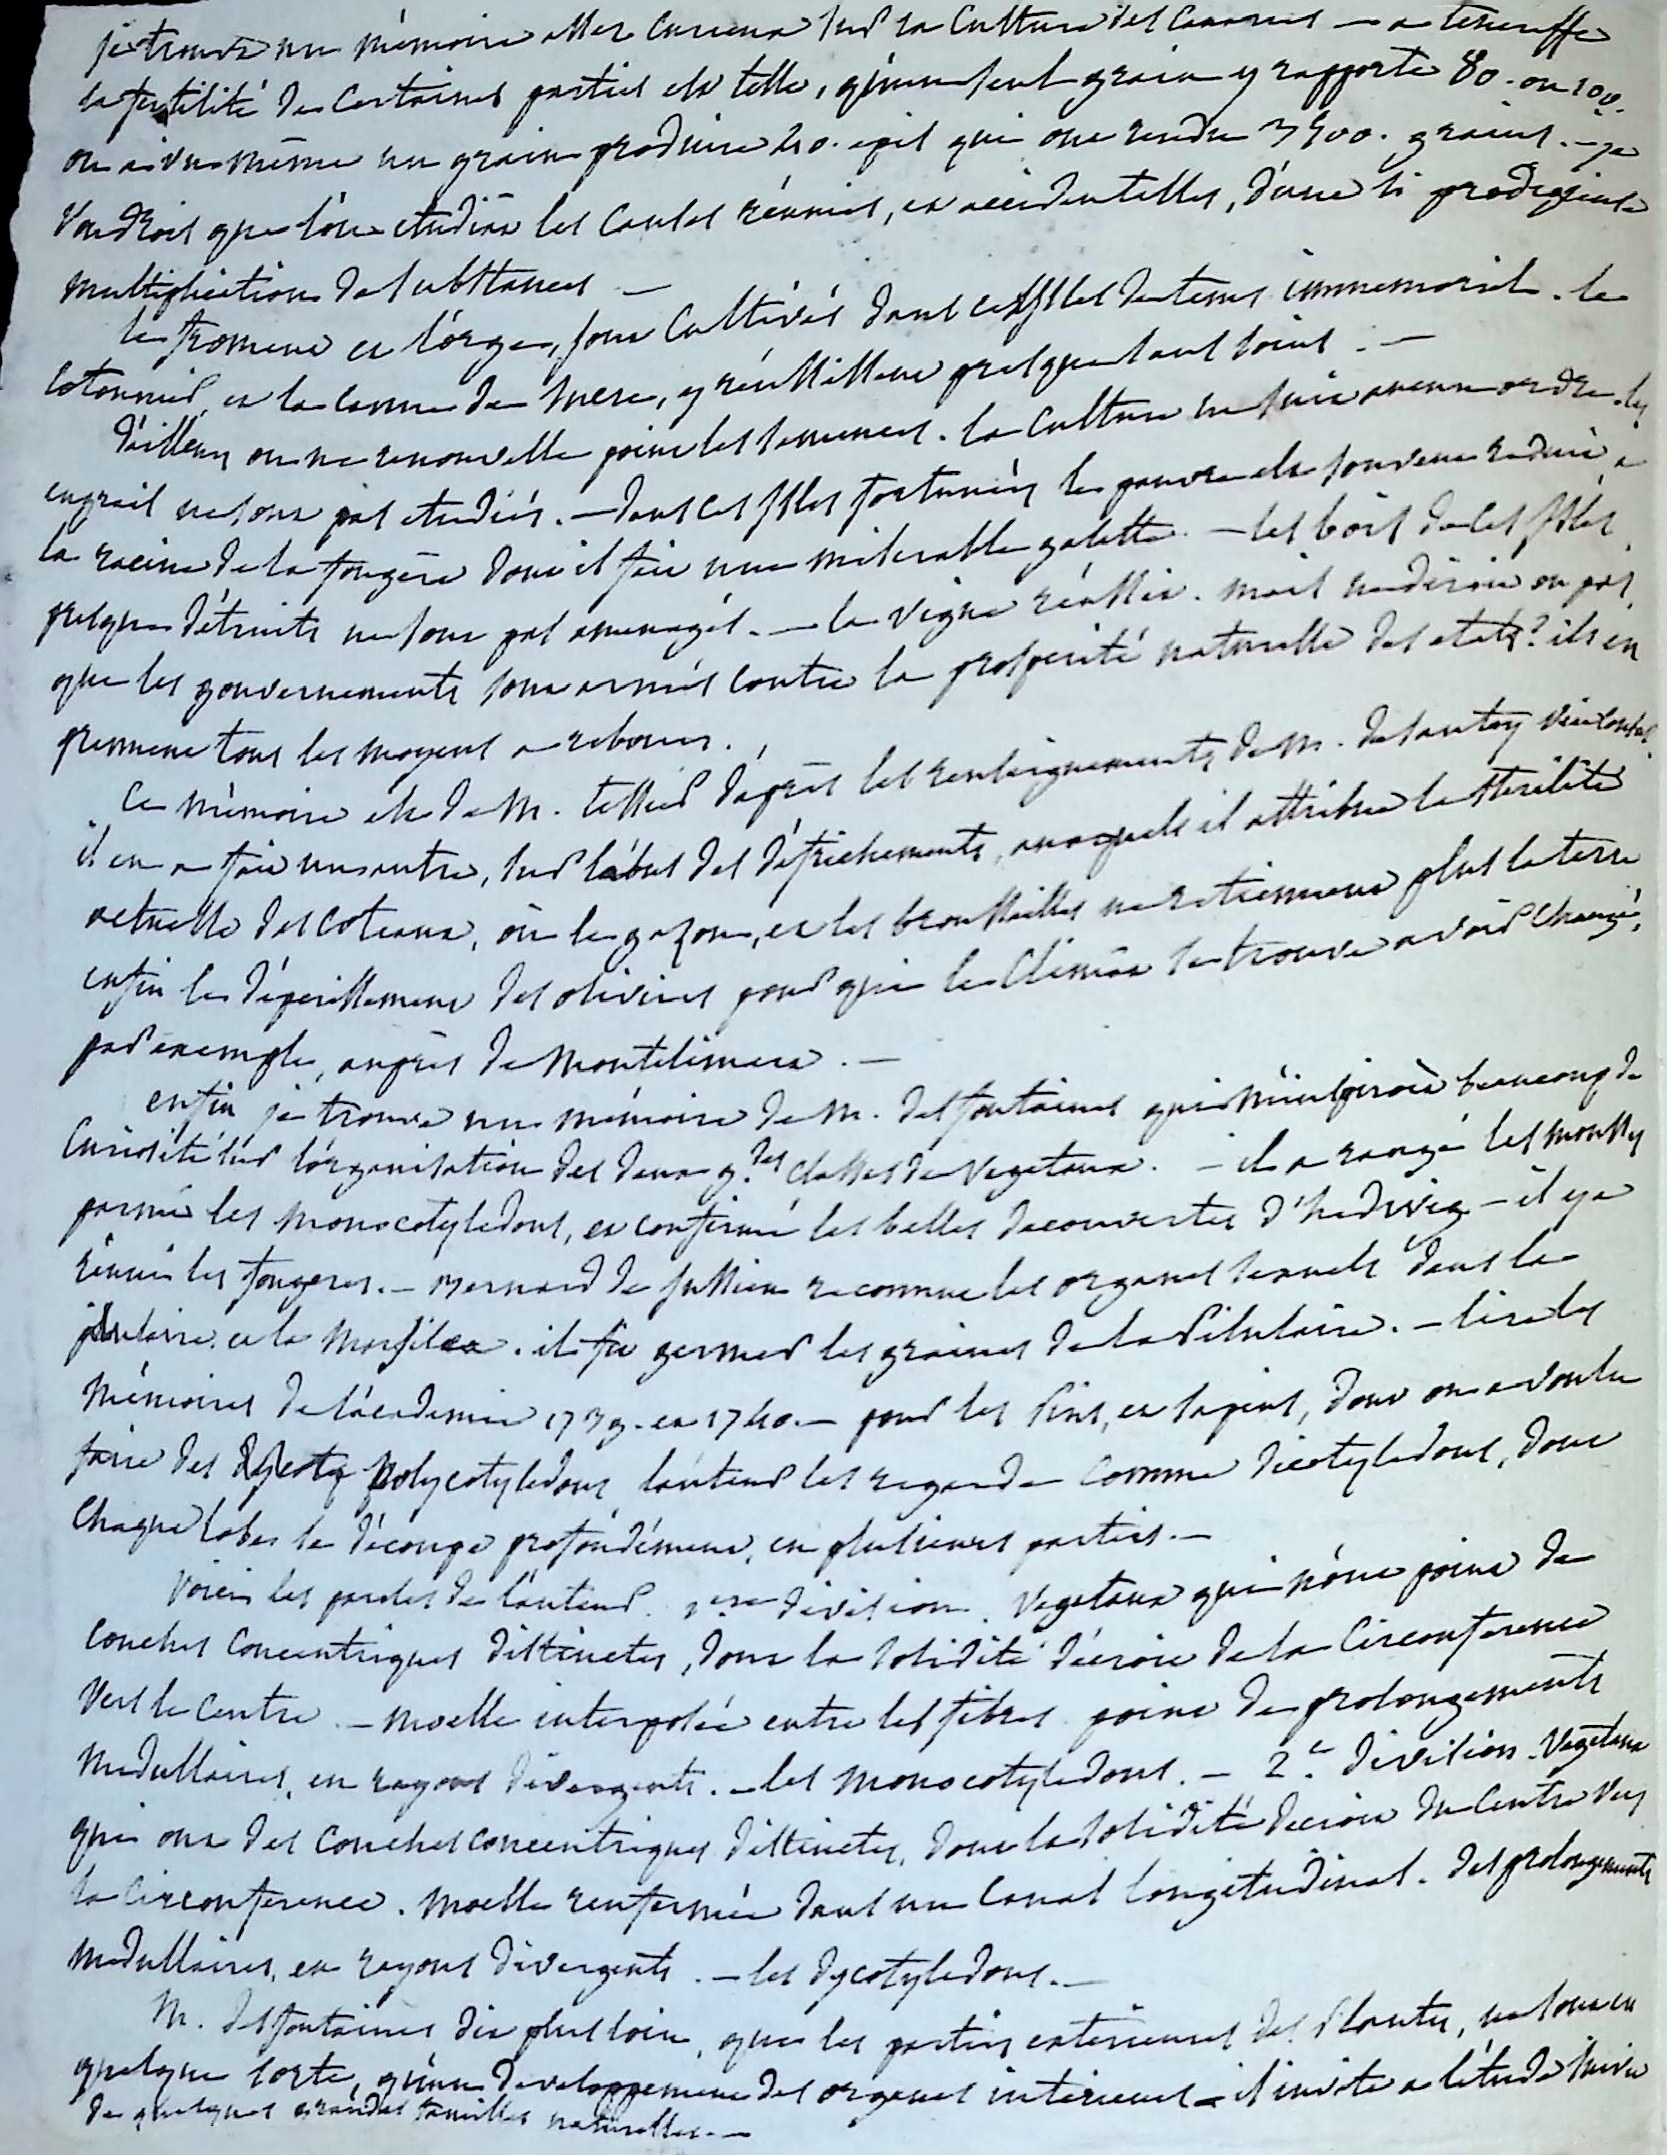 je trouve un mémoire assez curieux sur la culture des Canaries — a teneriffe
la fertilité de certaines parties est telle, qu'un seul grain y rapporte 80. ou 100.
on a vu même un grain produire 40. epis qui ont rendu grains. — je
voudrois que l'on etudiat les causes réunies, et accidentelles, d'une si prodigieuse
multiplication de substances —
le froment et l'orge, sont cultivés dans ces isles de tems immemorial. le
cotonnier, et la canne de sucre, y réussissent presque sans soins. —
d'ailleurs on ne renouvelle point les semences. la culture ne suit aucun ordre. les
engrais ne sont pas etudiés. — dans ces isles fortunées le pauvre est souvent reduit a
la racine de la fougère dont il fait une miserable galette. — les bois de ces isles
presque détruits ne sont pas amenagés. — la vigne réussit. mais ne diroit on pas,
que les gouvernements sont armés contre la prosperité naturelle des etats? ils en
prennent tous les moyens a rebours.
Ce mémoire est de M. tessier d'après les renseignements de M. de vice consul.
il en a fait un autre, sur l'abus des défrichements, auxquels il attribue la sterilité
actuelle des coteaux, où le gazon, et les broussailles ne retiennent plus la terre
enfin le dépérissement des oliviers pour qui le climat se trouve avoir changé,
par exemple, auprès de Montelimart. —
enfin je trouve un mémoire de M. desfontaines qui m'inspiroit beaucoup de
curiosité sur l'organisation des deux g.des classes de vegetaux. — il a rangé les mousses
parmi les monocotyledons, et confirmé les belles decouvertes d'hedwig — il y a
réuni les fougeres. — Bernard de jussieu reconnut les organes sexuels dans la
pilulaire et la Marsilea. il fit germer les graines de la Pilulaire. — lire les
mémoires de l'académie 1739. et 1740. — pour les Pins, et sapins, dont on a voulu
faire des polycotyledons, l'auteur les regarde comme dicotyledons, dont
chaque lobes se découpe profondément, en plusieurs parties. —
voici les paroles de l'auteur. 1ere division. vegetaux qui n'ont point de
couches concentriques distinctes, dont la solidité décroit de la circonference
vers le centre. — moelle interposée entre les fibres. point de prolongements
medullaires, en rayons divergents. — les monocotyledons. — 2.e division. vegetaux
qui ont des couches concentriques distinctes, dont la solidité decroit du centre vers
la circonference. moelle renfermée dans un canal longitudinal. des prolongements
medullaires, en rayons divergents. — les dycotyledons. —
M. desfontaines dit plus loin, que les parties exterieures des Plantes, ne sont en
quelque sorte, qu'un developpement des organes interieurs — il invite a l'étude suivie
de quelques grandes familles naturelles. —